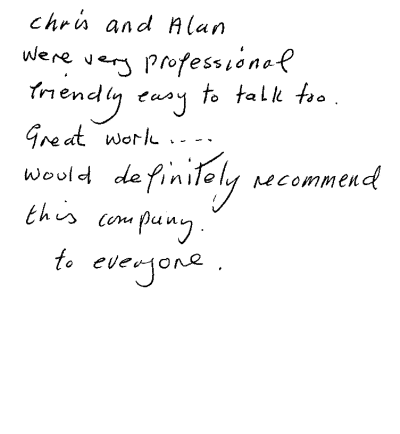 Chris and Alan
were very professional
friendly easy to talk too.
Great work....
would definitely recommend
this company.
to everyone.